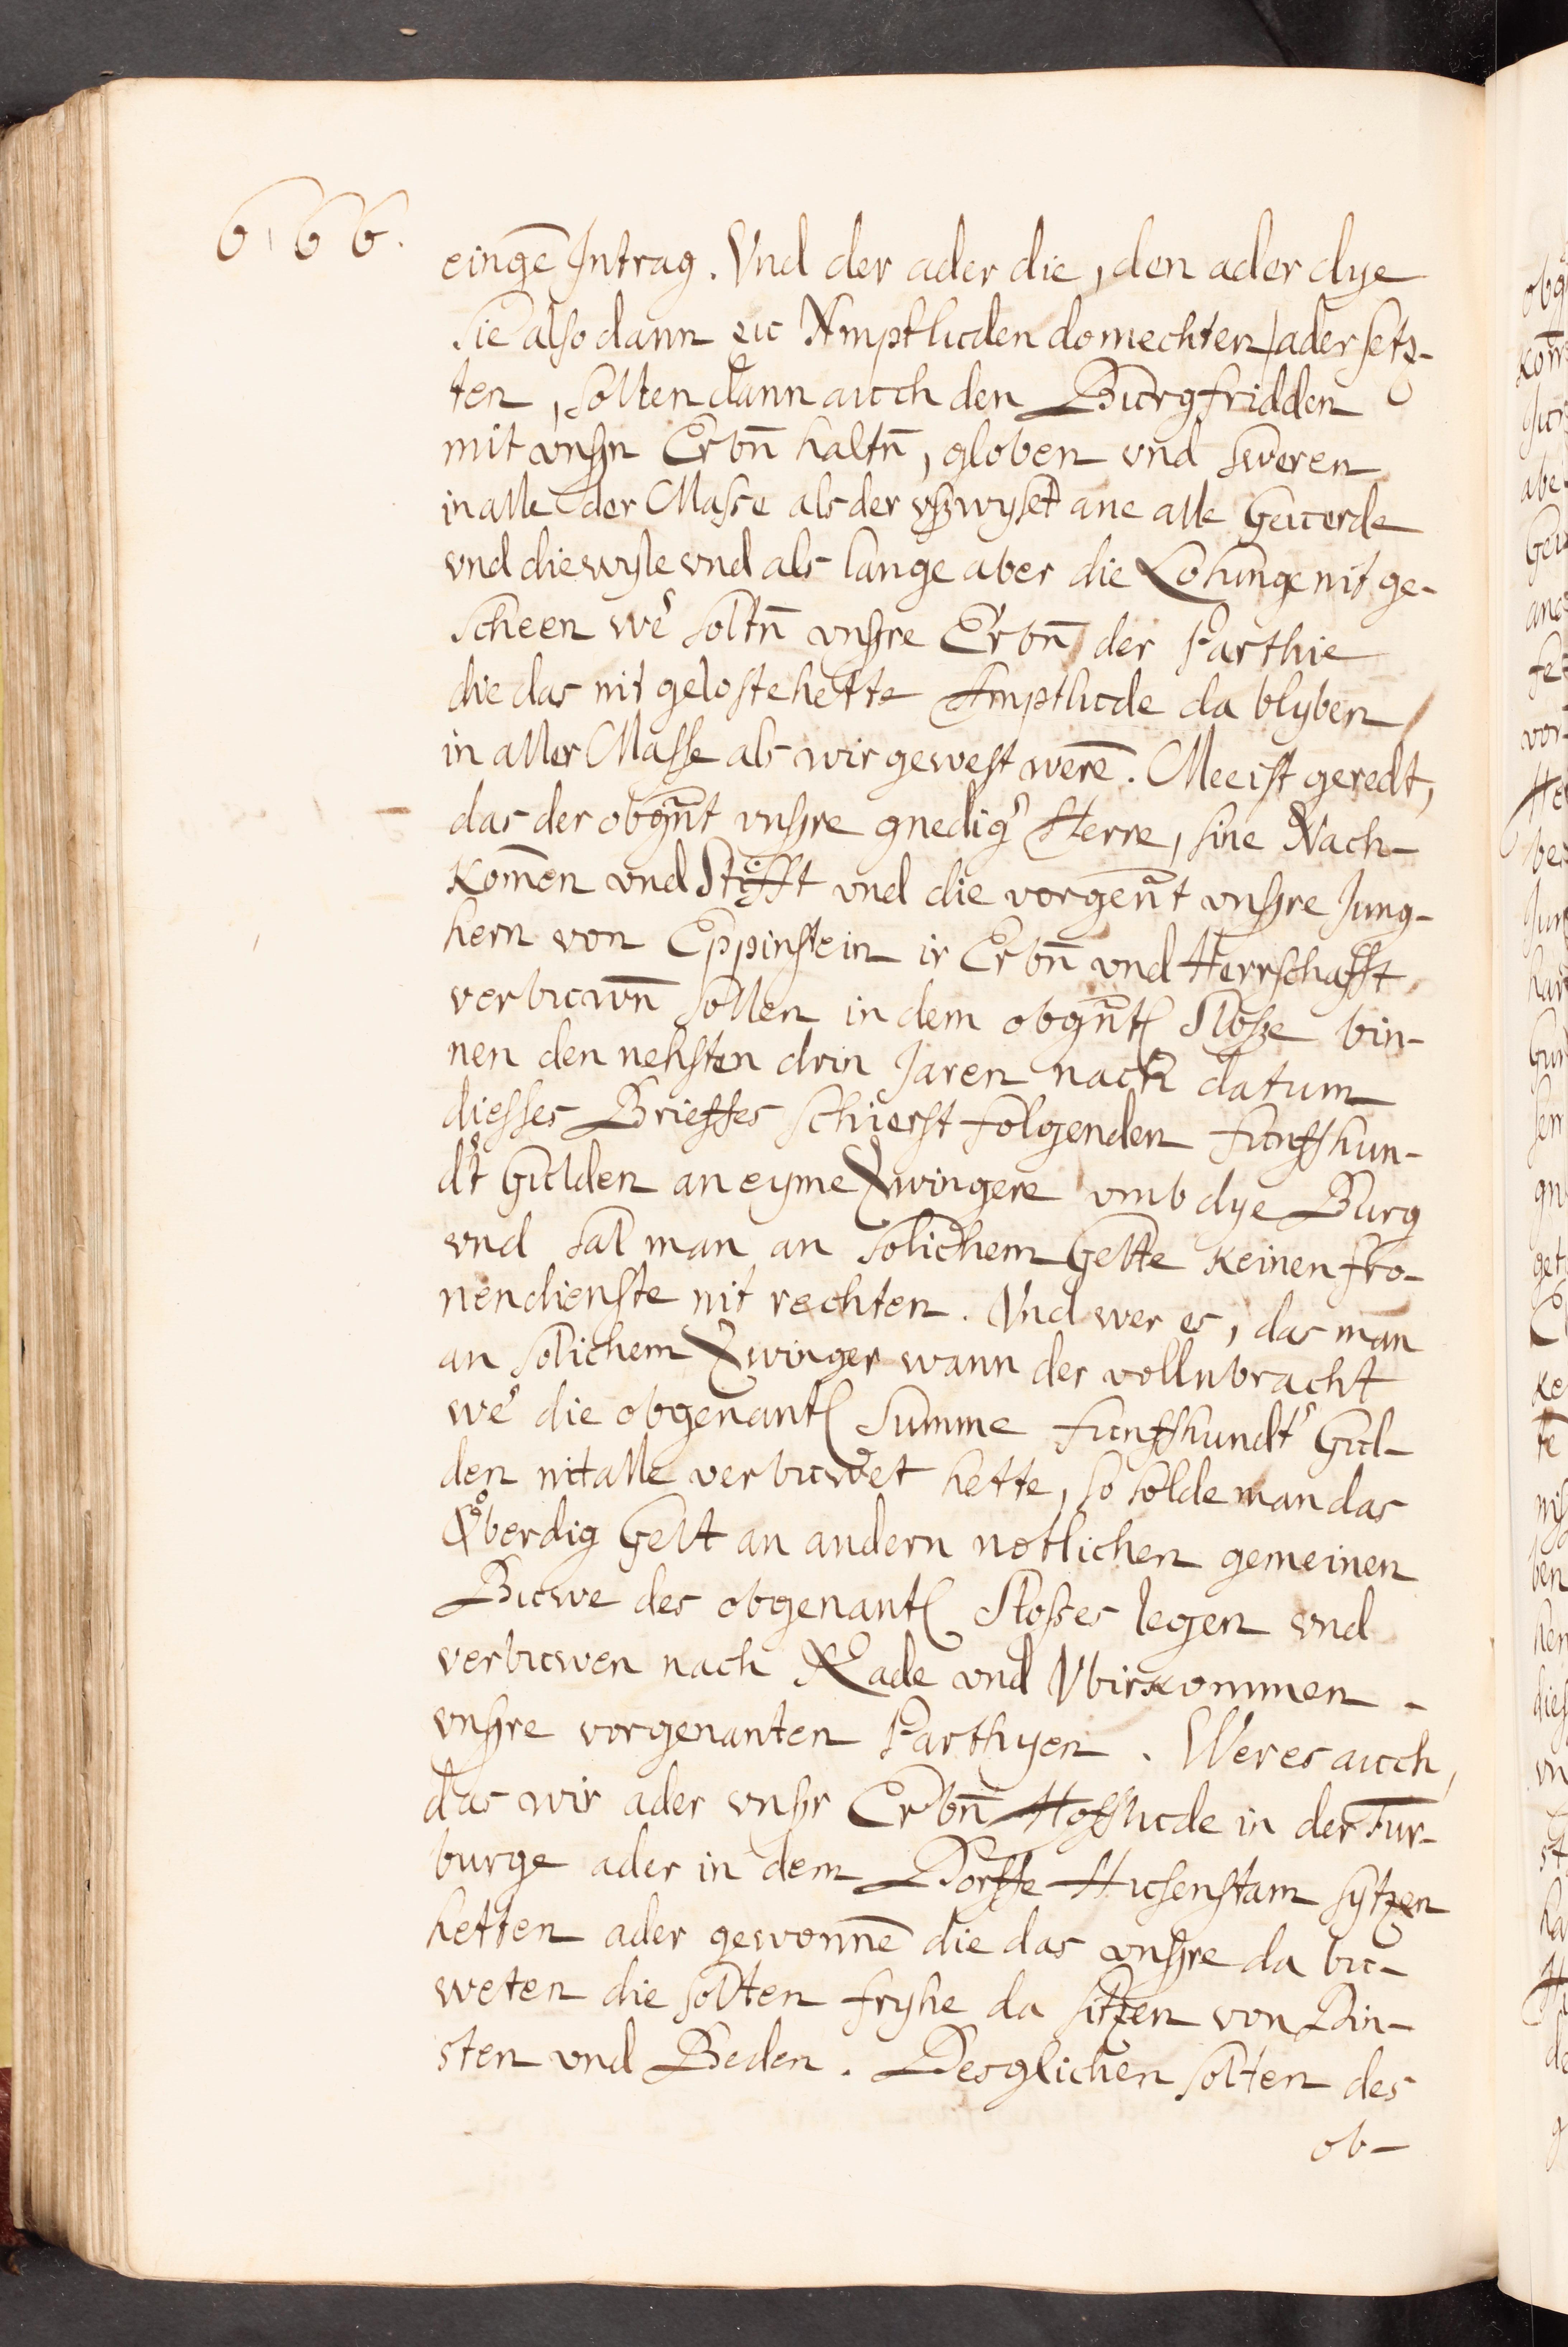 666.
eingē Intrag. Vnd der ader die, den ader dye
sie also dann zu Amptluden domechten, ader setz-
ten, solten dann auch den Burgfridden
mit vnsn̄ Erbn̄ haltn̄, globen vnd sweren
in alle der Masse als der vßwyset ane alle Geuerde
vnd diewyle vnd als lange aber die Losunge nit ge-
scheen we͛ soltn̄ vnßre Erbn̄ der Parthie
die das nit geloste hette Amptlude da blyben
in aller Masse als wir gewest werē. Mee ist geredt,
das der obgn̄t vnßre gnedig͛ Herre, sine Nach-
kom̄en vnd Stifft vnd die vorgen̄t vnßre Jung-
hern von Eppinstein ir Erbn̄ vnd Herrschafft
verbuwn̄ sollen in dem obgn̄t Sloße bin-
nen den nehsten drin Jaren nach datum
diesses Brieffes schierst folgenden funffhun-
d͛t Gulden an eyme Zwingere vmb dye Burg
vnd sal man an solichem Gelte keinen fro-
nendienste nit rechten. Vnd wer es, das man
an solichem Zwinger wann der vollnbracht
we͛ die obgenant Summe funffhundt͛ Gul-
den nit alle verbuwet hette, so solde man das
Vͦberdig Gelt an andern notlichen gemeinen
Buwe des obgenant Sloßes legen vnd
verbuwen nach Rade vnd Vbirkommen
vnßre vorgenanten Parthyen. Wer es auch,
das wir ader vnßr Erbn̄ Hofflude in der Fur-
burge ader in dem Dorffe Husenstam sytzen
hetten ader gewonnē die das vnßre da bu-
weten die solten fryhe da sitzen von Din-
sten vnd Beden. Desglichen solten des
ob-